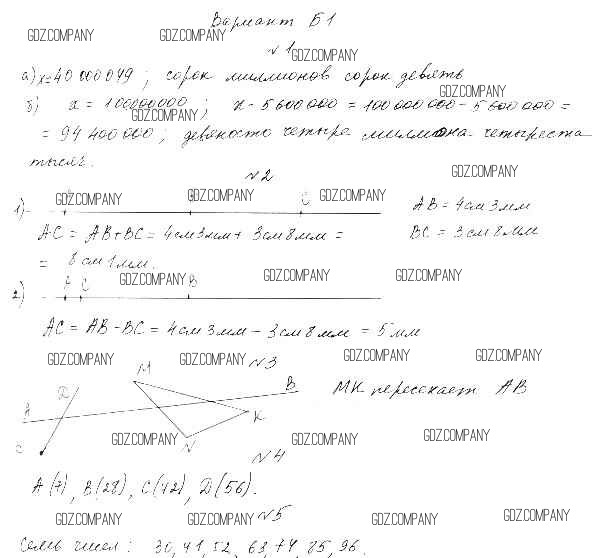 Вариант Б1
GDZ.COMPANY GDZ.COMPANY
№1 GDZ.COMPANY
а) x=40 000 049 ; сорок миллионов сорок девять
GDZ.COMPANY
б) x = 100000000 ; x - 5 600 000 = 100 000 000 - 5 600 000 =
GDZ.COMPANY
= 94 400 000 ; девяносто четыре миллиона четыреста
тысяч.
GDZ.COMPANY
№2
GDZ.COMPANY GDZ.COMPANY GDZ.COMPANY
1) C AB = 4см 3мм
AC = AB+BC = 4см 3мм + 3см 8мм = BC = 3см 8мм
= 8 см 1 мм.
GDZ.COMPANY GDZ.COMPANY GDZ.COMPANY
2) A C B
AC = AB - BC = 4см 3мм - 3см 8мм = 5 мм
GDZ.COMPANY GDZ.COMPANY №3 GDZ.COMPANY GDZ.COMPANY
M
D B MK пересекает AB
A K
C N
GDZ.COMPANY GDZ.COMPANY GDZ.COMPANY
№4
A(7), B(28), C(42), D(56).
GDZ.COMPANY GDZ.COMPANY №5 GDZ.COMPANY GDZ.COMPANY
Семь чисел: 30, 41, 52, 63, 74, 85, 96.